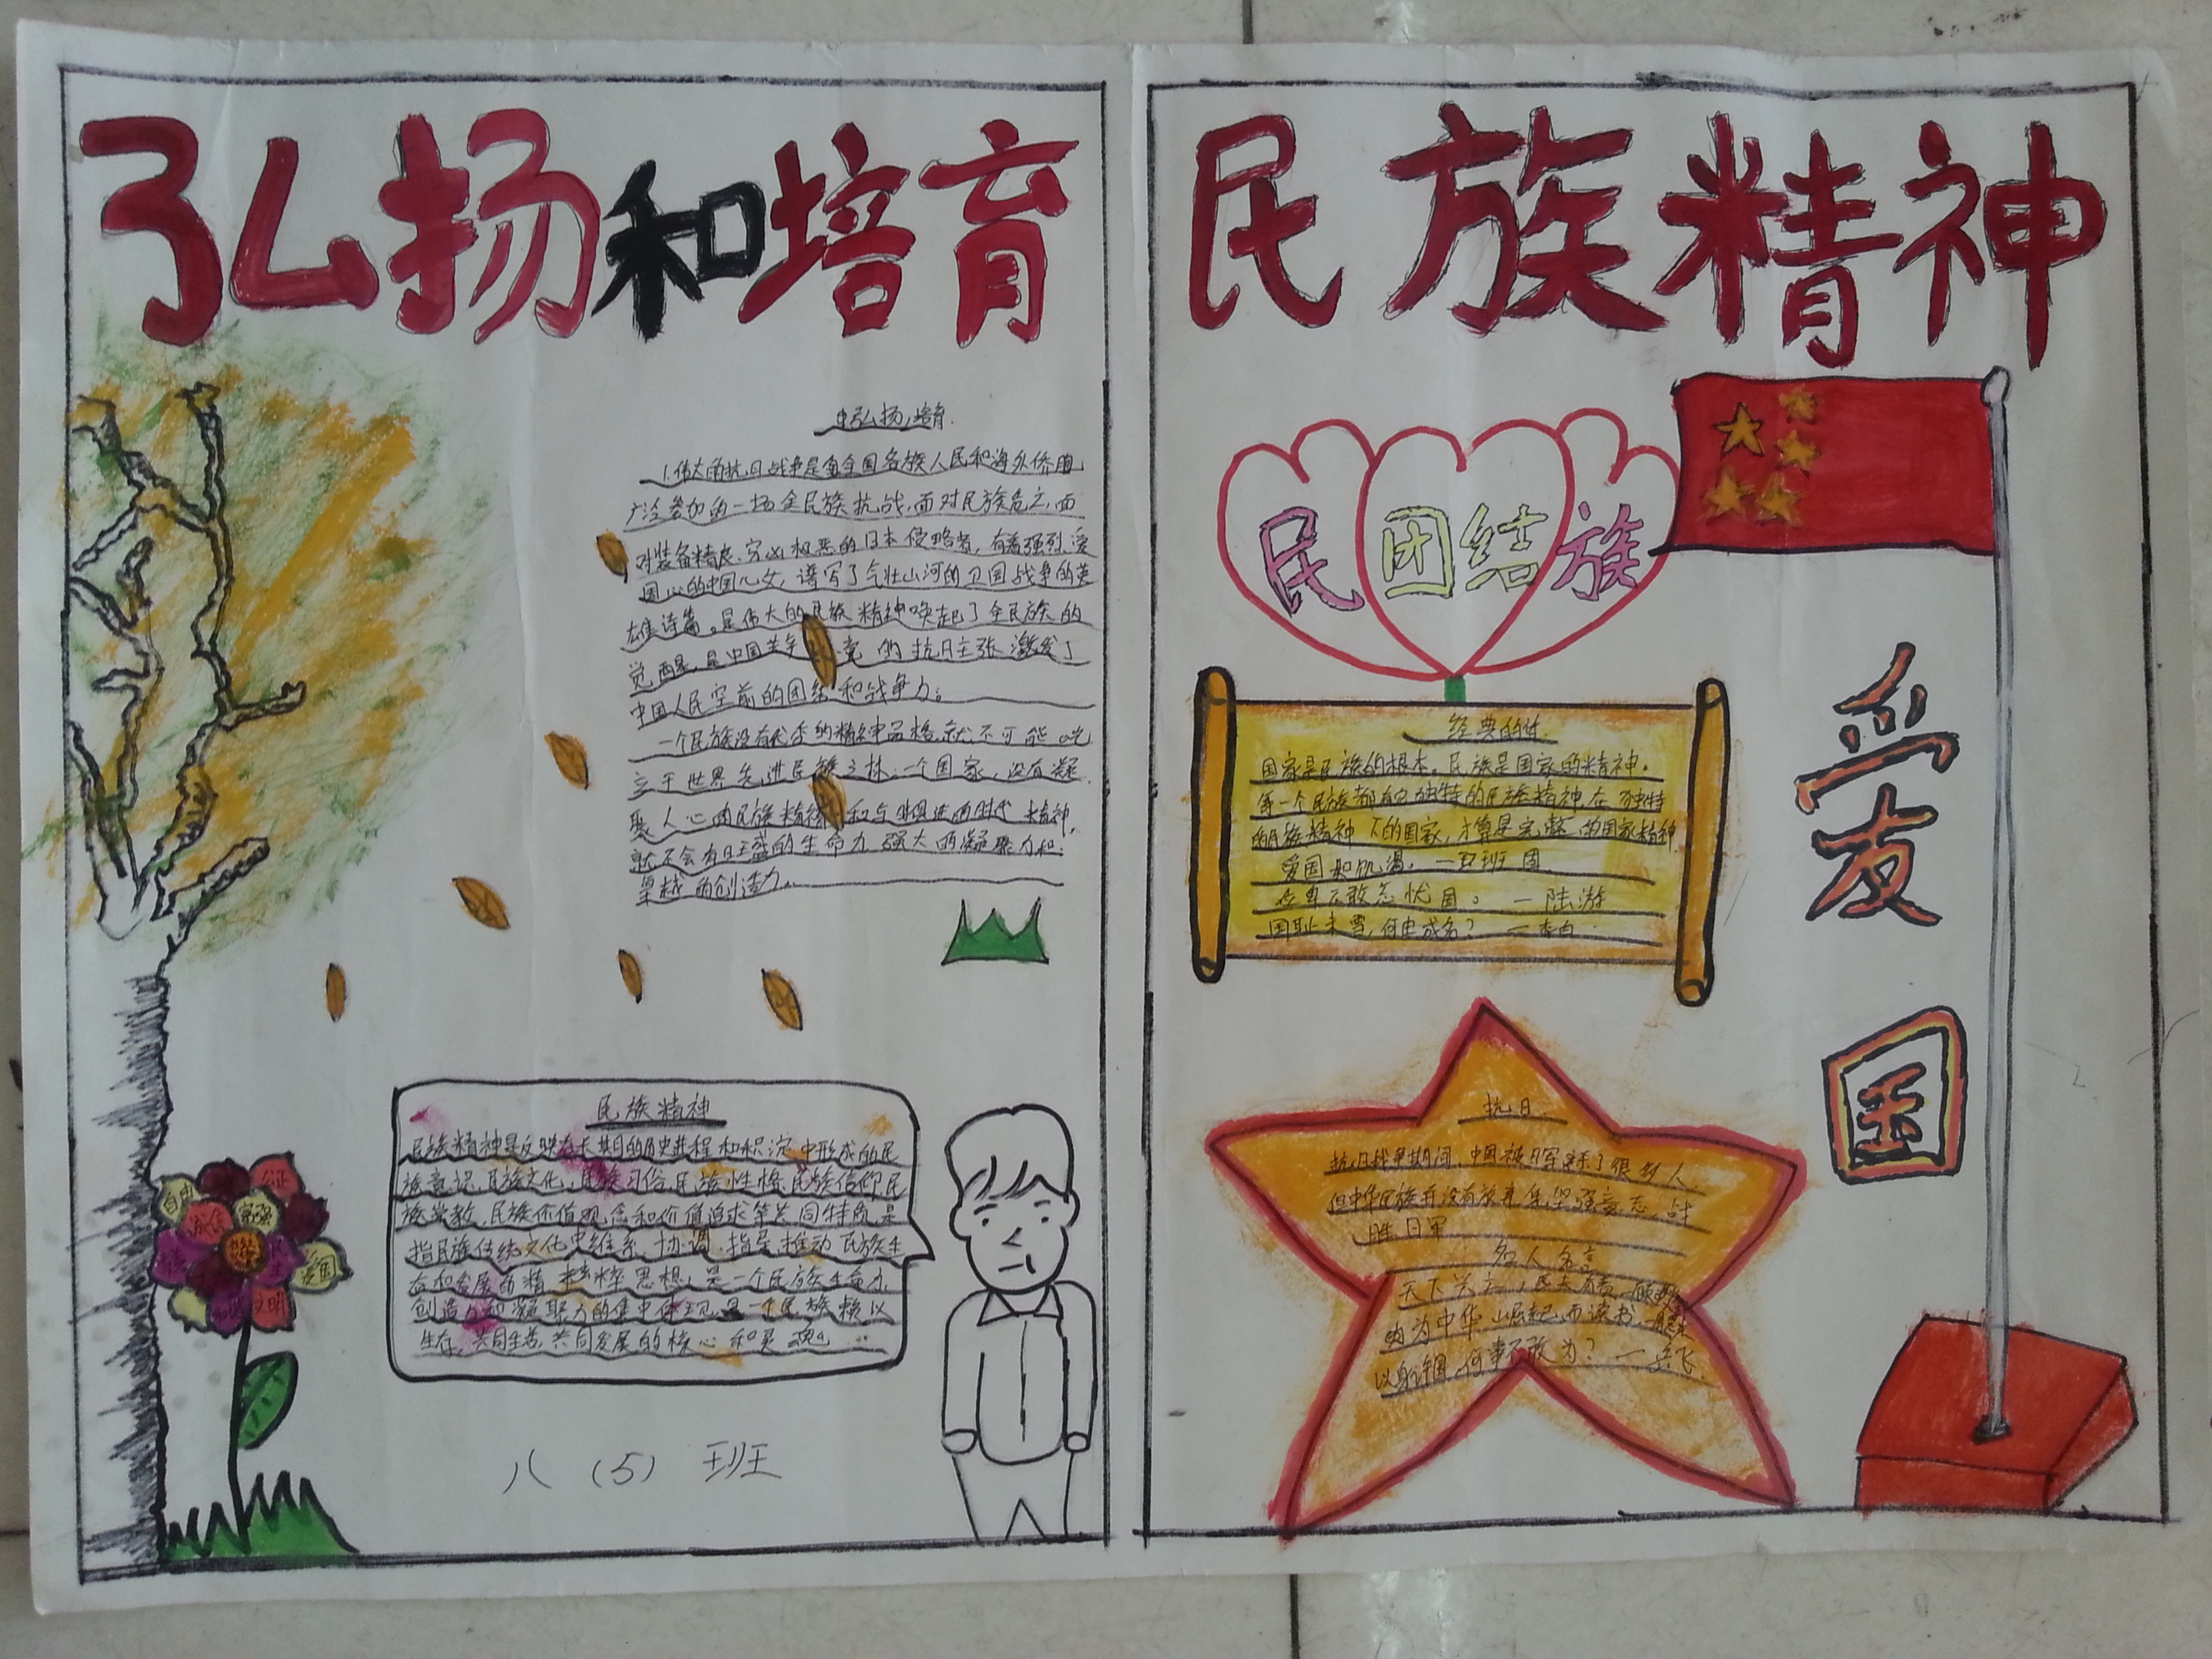 弘扬和培育
弘扬 培育
1.伟大的抗日战争是全国各族人民和海外侨胞
广泛参加的一场全民族抗战,面对民族危亡,面
对装备精良、穷凶极恶的日本侵略者,有着强烈爱
国心的中国儿女,谱写了气壮山河的卫国战争的英
雄诗篇。是伟大的民族精神唤起了全民族的
觉醒,是中国共 党的抗日主张激发了
中国人民空前的团结和战争力。
一个民族没有 的精神品格就不可能屹
立于世界先进民族之林,一个国家,没有凝
聚人心的民族精神和与 俱进的时代精神,
就不会有旺盛的生命力 强大的凝聚力和
卓越的创造力。
民族精神
民族精神是反映在长期的历史进程和积淀中形成的民
族意识、民族文化、民族习俗、民族性格、民族信仰、民
族宗教,民族价值观念和价值追求等共同特质,是
指民族传统文化中维系、协调、指导、推动民族生
存和发展的精粹思想,是一个民族生命力
创造力和凝聚力的集中体现,是一个民族赖以
生存,共同生活,共同发展的核心和灵魂。
自由
公正
诚信
富强
爱国
文明
八(5)班
民族精神
民团结族
经典的
国家是民族的根本。民族是国家的精神。
每一个民族都有它独特的民族精神,在独特
的民族精神下的国家,才算是完整的国家精神
爱国如饥渴。—班固
位卑不敢忘忧国。—陆游
国耻未雪,何由成名?—李白
爱
国
抗日
抗日战争期间,中国被日军 了很多人
但中华民族并没有放弃,坚强意志,战
胜日军
名人名言
天下兴亡,匹夫有责,—顾炎武
为中华崛起而读书,—周恩来
以身许国,何事不敢为?—岳飞